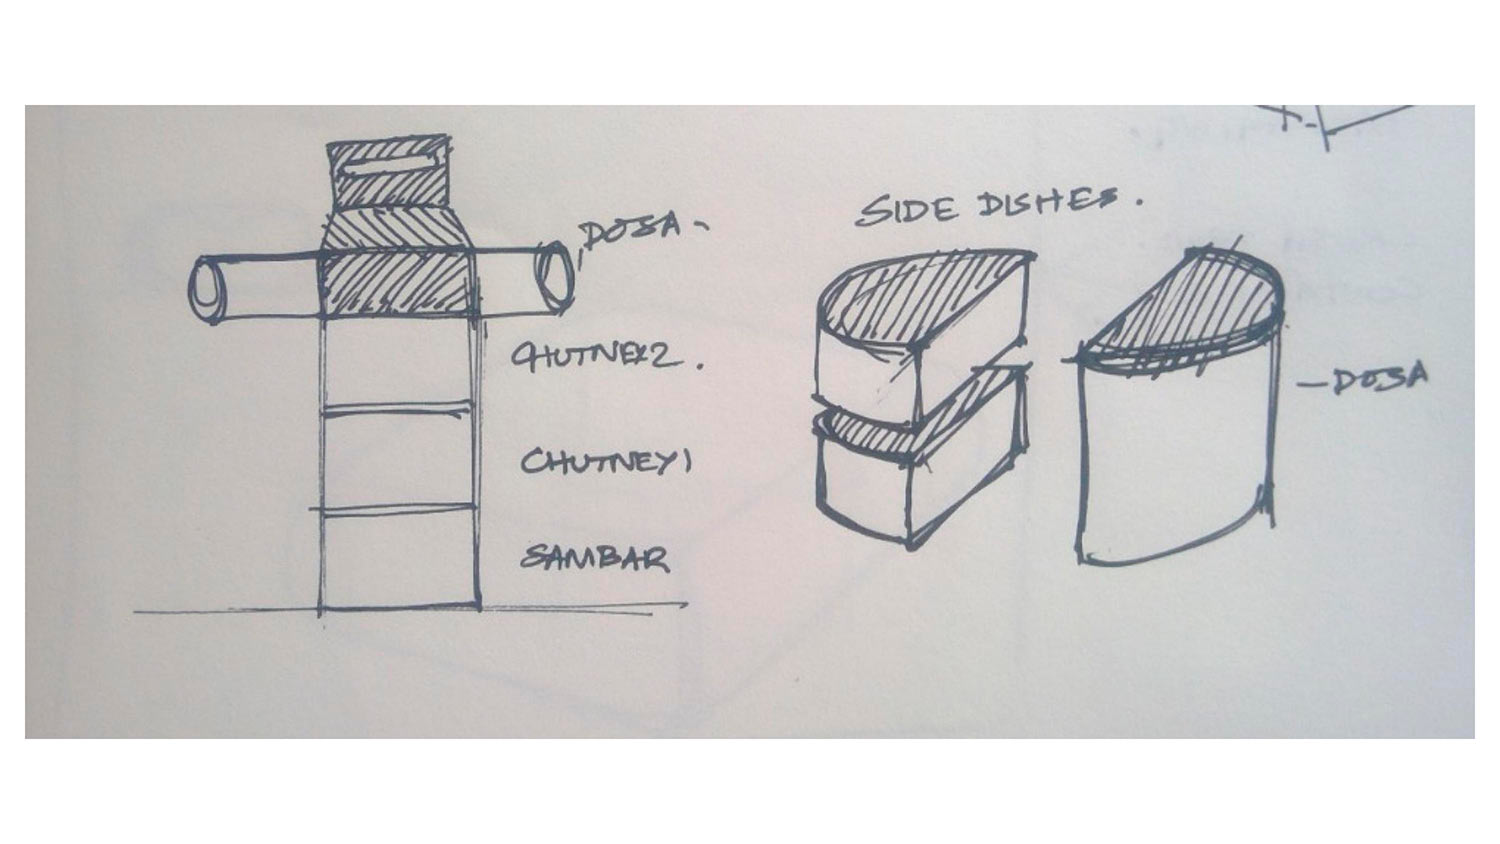 DOSA -
CHUTNEY2.
CHUTNEY1
SAMBAR
SIDE DISHES.
- DOSA